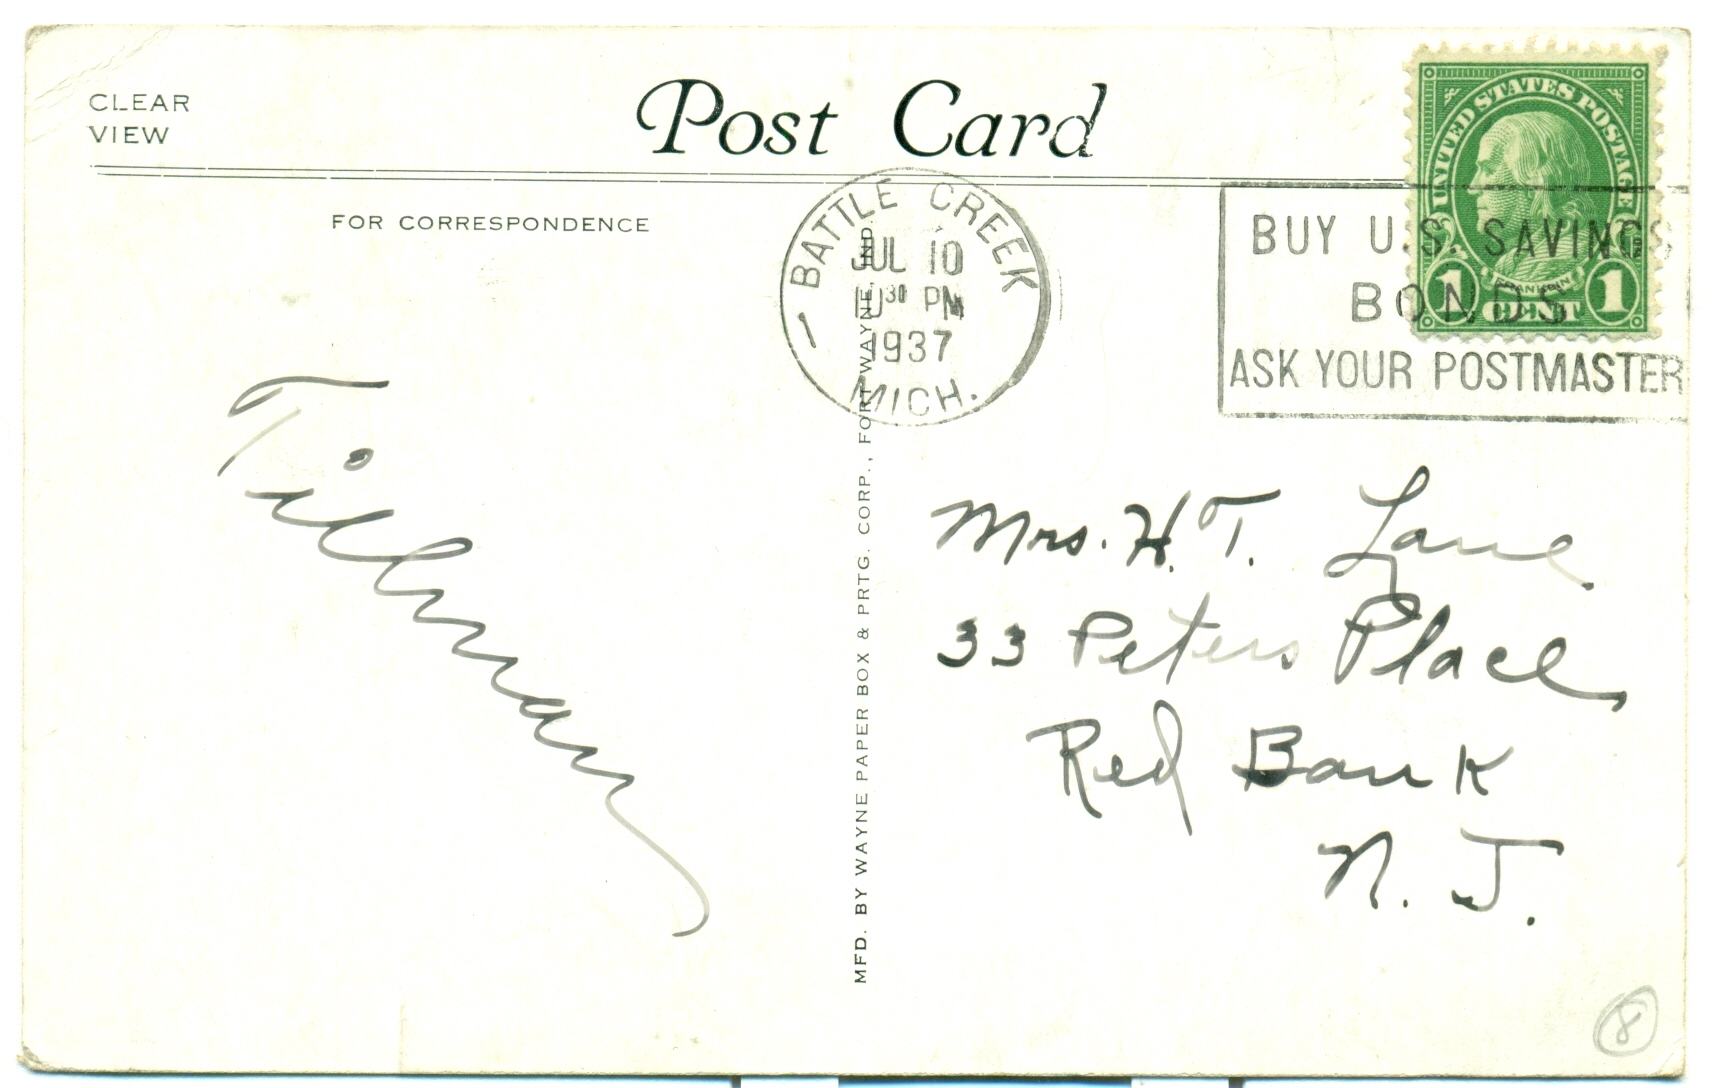 CLEAR
VIEW
Post Card
FOR CORRESPONDENCE
BATTLE CREEK
JUL 10
10 30 PM
1937
MICH.
BUY U.S. SAVINGS
BONDS
ASK YOUR POSTMASTER
UNITED STATES POSTAGE
FRANKLIN
1 CENT 1
Tillman
MFD. BY WAYNE PAPER BOX & PRTG. CORP., FORT WAYNE, IND.
Mrs. H. T. Lane
33 Peters Place
Red Bank
N. J.
8